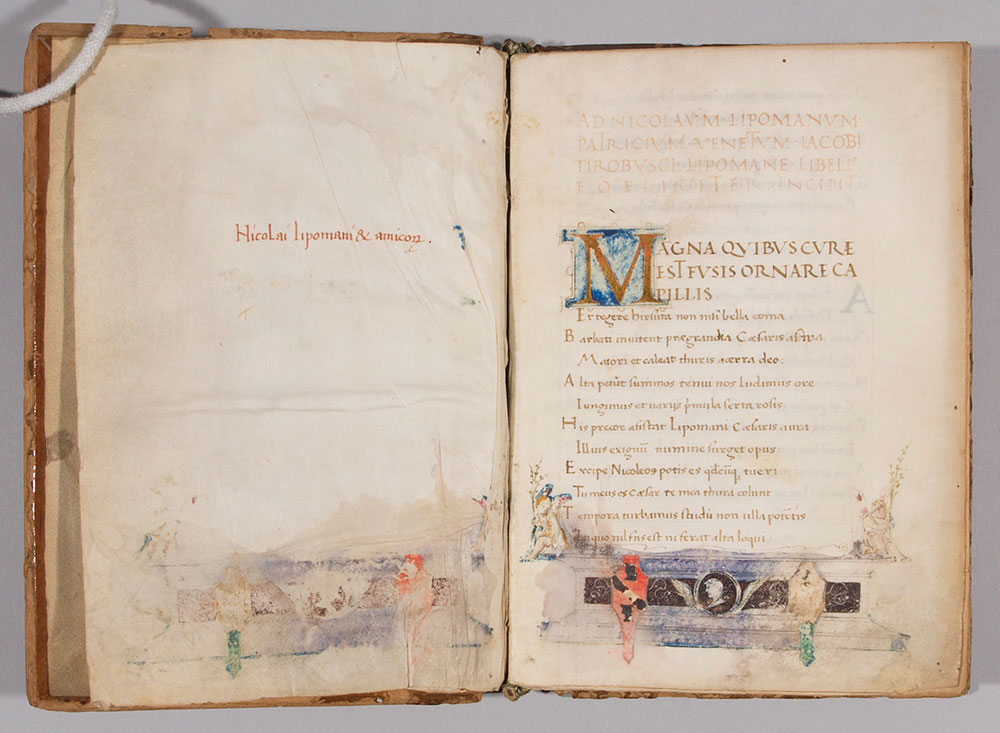 Nicolai lipomani & amicoꝝ.
AD NICOLAVM LIPOMANVM
PATRICIVM VENETVM IACOBI
TIROBUSCI LIPOMANE LIBELꝰ
INCIPIT
MAGNA QVIBUS CURE
EST FUSIS ORNARE CA
PILLIS
Et tegere hirsuta non nisi bella coma
Barbati invitent prægrandia Cæsaris astra
Maiori et caleat thuris acerra deo:
Alta petūt summos tenui nos ludimus ore
Iungimus et uarijs pmula serta rosis
His precor asistat Lipomani Cæsaris aura
Illius exiguū numine surget opus
Excipe Nicoleos potis es qdcūq tueri
Tu meus es Cæsar te mea thura colunt
Tempora turbamus studii non ulla potentis
quo nil est ni ferat alta loqui